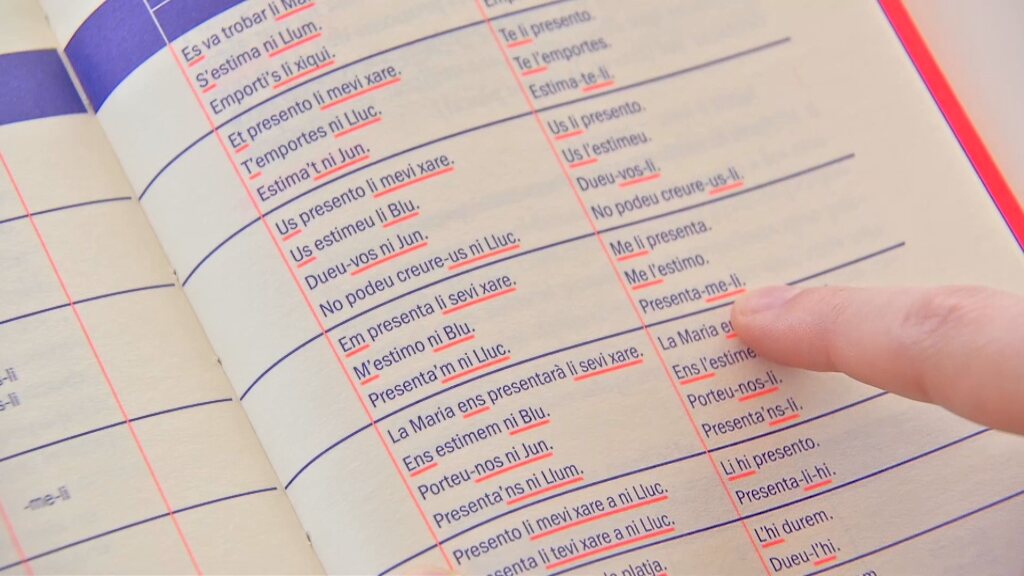 Es va trobar li
S'estima ni Llum.
Emporti's li xiqui.
Et presento li mevi xare.
T'emportes ni Lluc.
Estima't ni Jun.
Us presento li mevi xare.
Us estimeu li Blu.
Dueu-vos ni Jun.
No podeu creure-us ni Lluc.
Em presenta li sevi xare.
M'estimo ni Blu.
Presenta'm ni Lluc.
La Maria ens presentarà li sevi xare.
Ens estimem ni Blu.
Porteu-nos ni Jun.
Presenta'ns ni Llum.
Presento li mevi xare a ni Lluc.
presenta li tevi xare a ni Lluc.
platja.
Te li presento.
Te l'emportes.
Estima-te-li.
Us li presento.
Us l'estimeu.
Dueu-vos-li.
No podeu creure-us-li.
Me li presenta.
Me l'estimo.
Presenta-me-li.
La Maria
Ens l'estime
Porteu-nos-li.
Presenta'ns-li.
Li hi presento.
Presenta-li-hi.
L'hi durem.
Dueu-l'hi.
-me-li